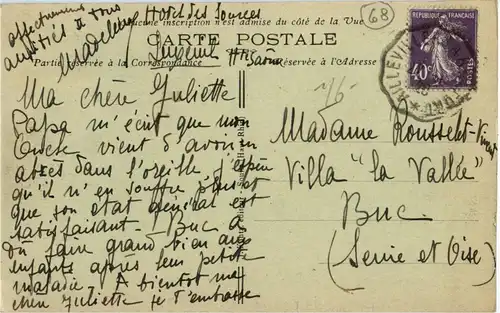 affectueuses
amitiés à tous
Madeleine
Hotel des Sources
Luxeuil
Hte Saône
Aucune inscription n'est admise du côté de la Vue
CARTE POSTALE
Partie réservée à la Correspondance
Réservée à l'Adresse
68
REPUBLIQUE FRANÇAISE
40c
POSTES
Ma chère Juliette
Papa m'écrit que mon
Oncle vient d'avoir un
abcès dans l'oreille j'espère
qu'il n'en souffre plus et
que son état général est
satisfaisant. Buc a
dû faire grand bien aux
enfants après leur petite
maladie. A bientôt ma
chère Juliette je t'embrasse
Madame Rousselet
Villa "la Vallée"
Buc
(Seine et Oise)